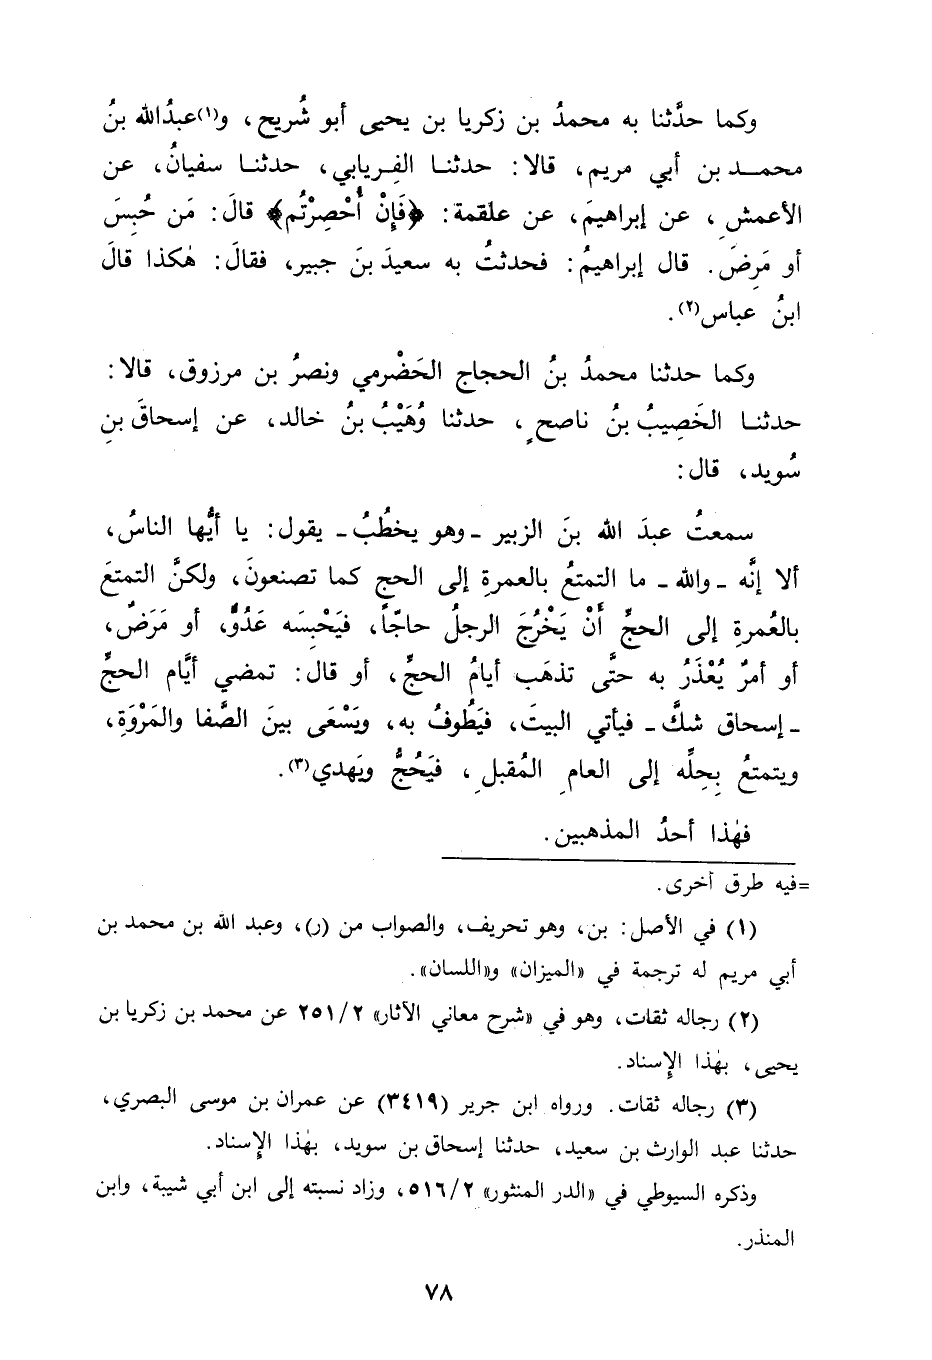 وكما حدَّثنا به محمدُ بن زكريا بن يحيى أبو شُريح، و(١)عبدُالله بنُ
محمد بن أبي مريم، قالا: حدثنا الفِريابي، حدثنا سفيانُ، عن
الأعمشِ، عن إبراهيمَ، عن علقمة: ﴿فَإِنْ أُحْصِرْتُم﴾ قالَ: مَن حُبِسَ
أو مَرِضَ. قال إبراهيمُ: فحدثتُ به سعيدَ بنَ جبير، فقالَ: هٰكذا قالَ
ابنُ عباس(٢).
وكما حدثنا محمدُ بنُ الحجاج الحَضْرمي ونصرُ بن مرزوق، قالا:
حدثنا الخَصِيبُ بنُ ناصحٍ، حدثنا وُهَيْبُ بنُ خالد، عن إسحاقَ بنِ
سُويد، قال:
سمعتُ عبدَ الله بنَ الزبير ـ وهو يخطُبُ ـ يقول: يا أيُّها الناسُ،
ألا إنَّه ـ والله ـ ما التمتعُ بالعمرةِ إلى الحج كما تصنعونَ، ولكنَّ التمتعَ
بالعُمرةِ إلى الحجِّ أَنْ يَخْرُجَ الرجلُ حاجّاً، فيَحْبِسَه عَدُوٌّ، أو مَرَضٌ،
أو أمرٌ يُعْذَرُ به حتَّى تذهَب أيامُ الحجِّ، أو قال: تمضي أيَّام الحجِّ
ـ إسحاق شكَّ ـ فيأتي البيتَ، فيَطُوفُ به، ويَسْعَى بينَ الصَّفا والمَرْوَةِ،
ويتمتعُ بِحِلِّه إلى العامِ المُقبلِ، فيَحُجُّ ويَهدي(٣).
فهٰذا أحدُ المذهبين.
=فيه طرق أخرى.
(١) في الأصل: بن، وهو تحريف، والصواب من (ر)، وعبد الله بن محمد بن
أبي مريم له ترجمة في «الميزان» و«اللسان».
(٢) رجاله ثقات، وهو في «شرح معاني الآثار» ٢٥١/٢ عن محمد بن زكريا بن
يحيى، بهٰذا الإِسناد.
(٣) رجاله ثقات. ورواه ابن جرير (٣٤١٩) عن عمران بن موسى البصري،
حدثنا عبد الوارث بن سعيد، حدثنا إسحاق بن سويد، بهٰذا الإِسناد.
وذكره السيوطي في «الدر المنثور» ٥١٦/٢، وزاد نسبته إلى ابن أبي شيبة، وابن
المنذر.
٧٨